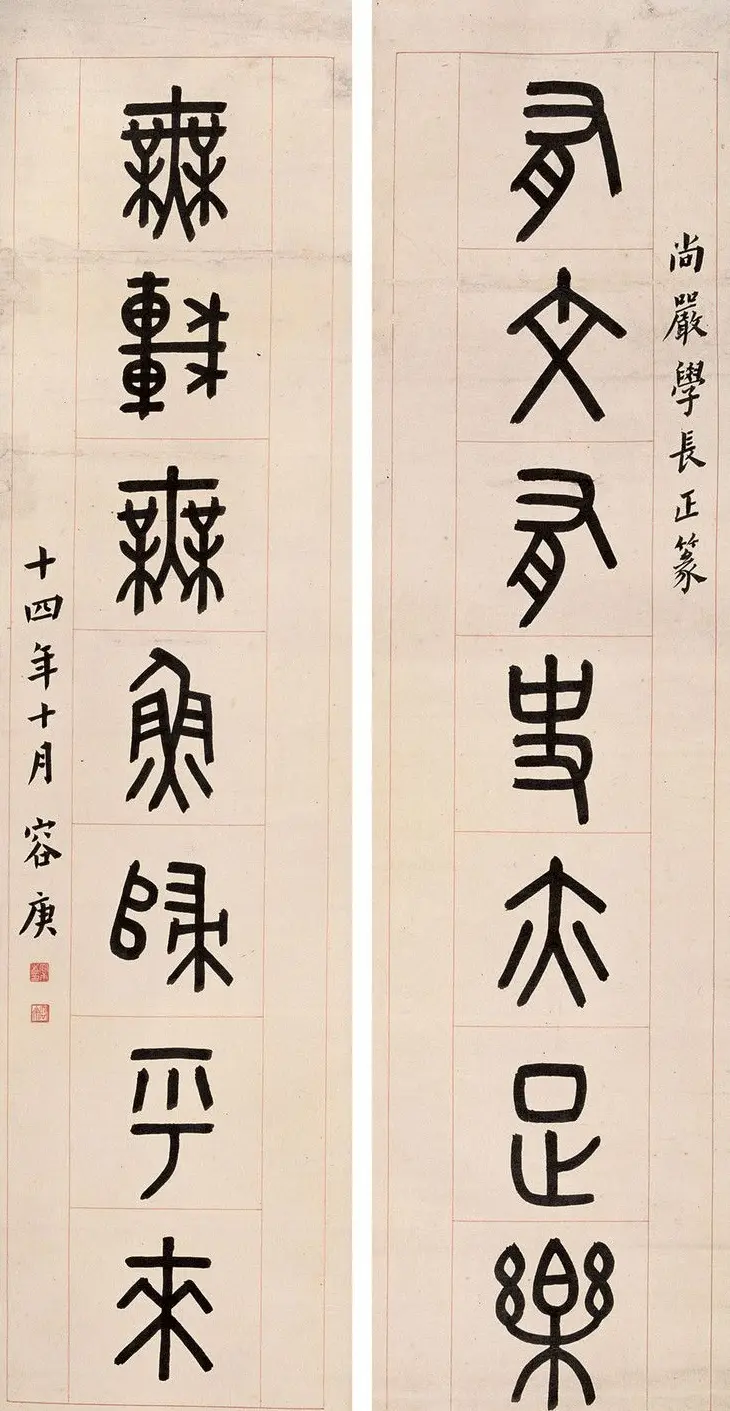 尚嚴學長正篆
有文有史亦足樂
無車無魚歸乎來
十四年十月 容庚